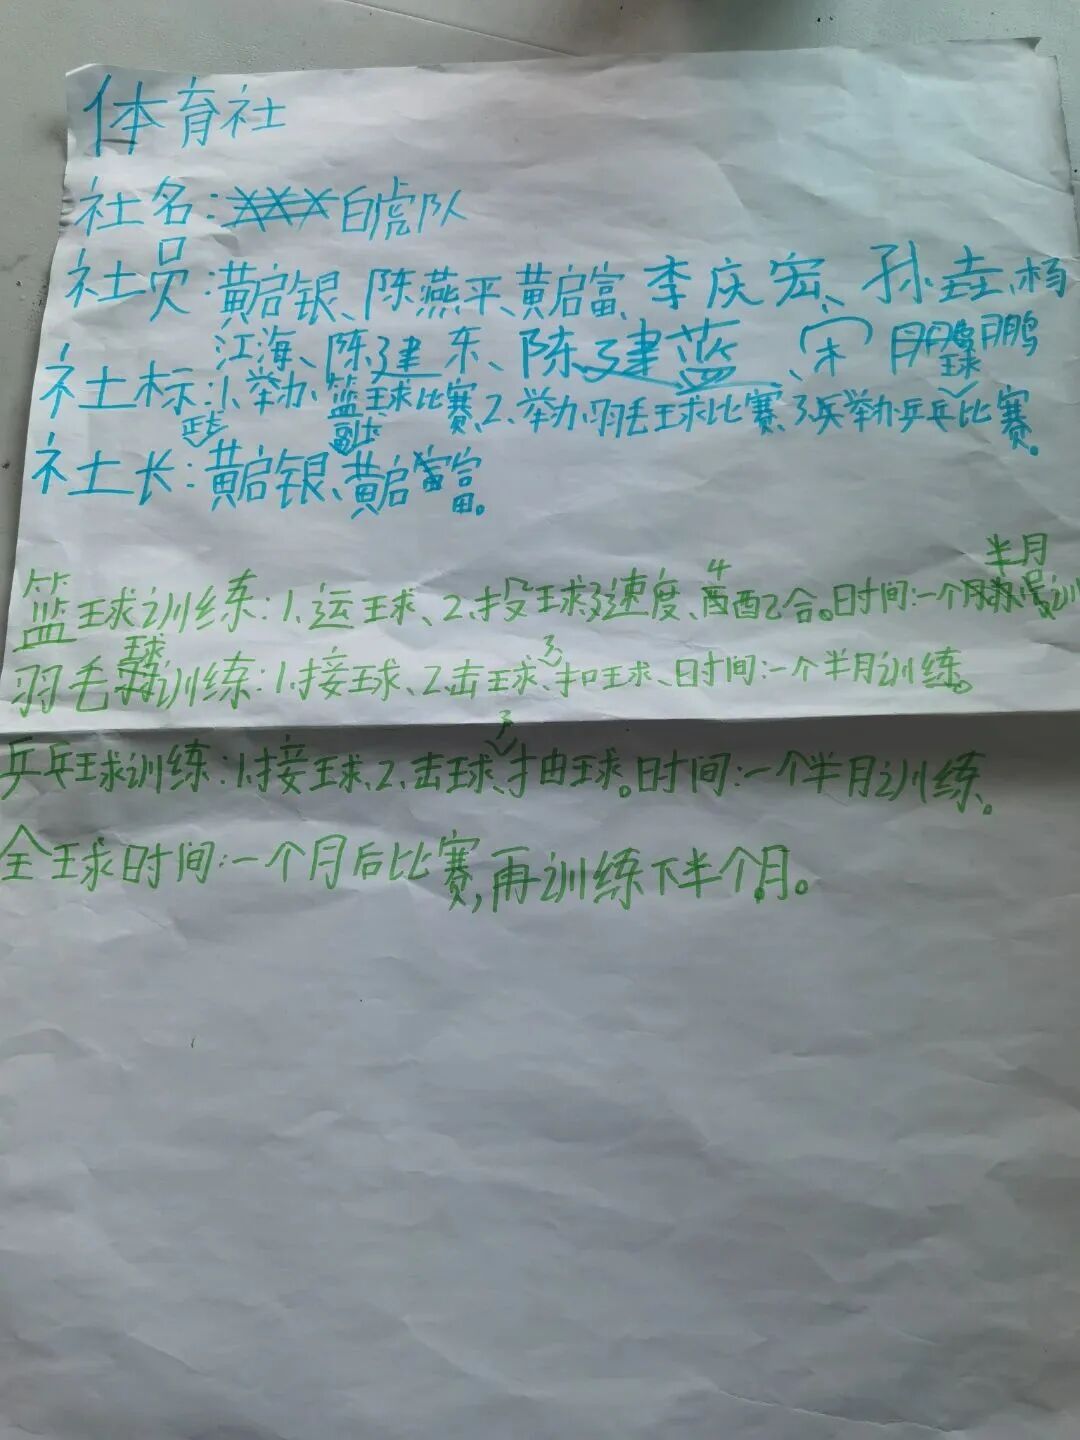 体育社
社名：白虎队
社员：黄启银、陈燕平、黄启富、李庆宏、孙垚、杨
江海、陈建东、陈建蓝、宋鹏鹏
社标：1、举办篮球比赛、2、举办羽毛球比赛、3、举办乒乓球比赛。
社长：黄启银、黄启富。
正 副
篮球训练：1、运球、2、投球、3速度、4配合。时间：一个半月训
羽毛球训练：1、接球、2、击球、3扣球、时间：一个半月训练。
乒乓球训练：1、接球、2、击球、3抽球。时间：一个半月训练。
全球时间：一个月后比赛，再训练下半个月。